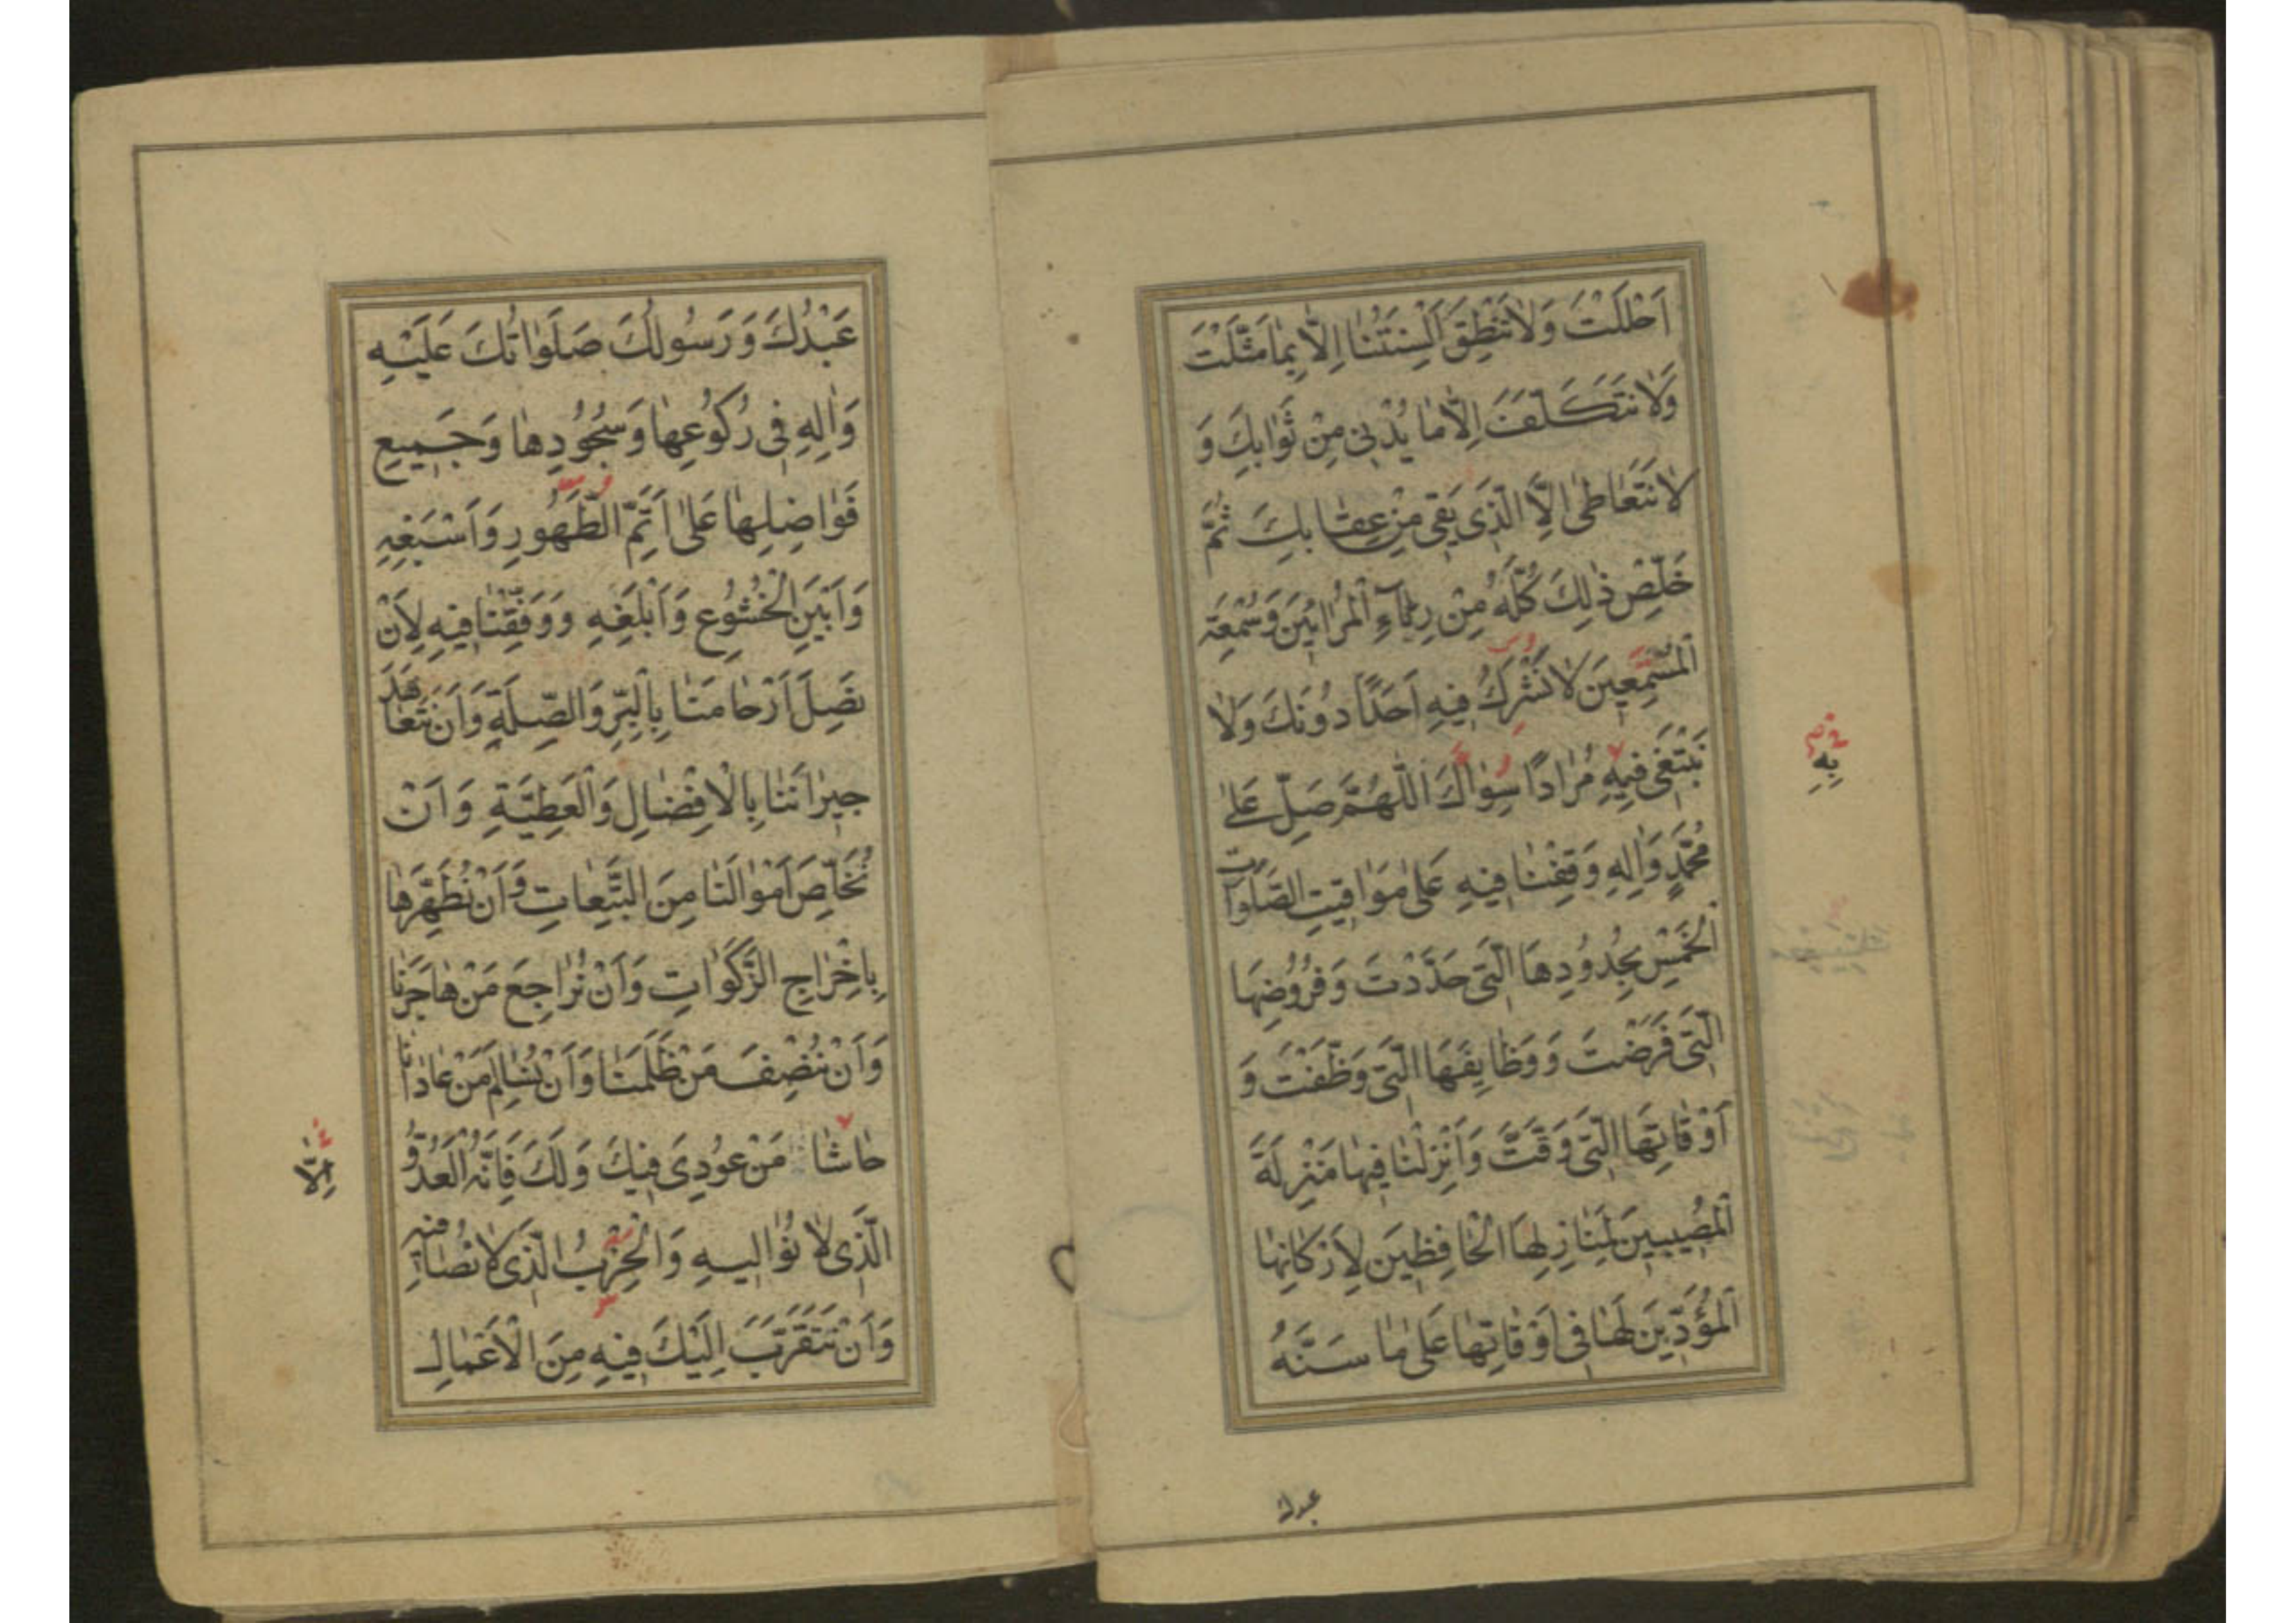 اَحْلَلْتَ وَلَا تَنْطِقَ اَلْسِنَتُنَا اِلَّا بِمَا مَثَّلْتَ
وَلَا نَتَكَلَّفَ اِلَّا مَا يُدْنِى مِنْ ثَوَابِكَ وَ
لَا نَتَعَاطٰى اِلَّا الَّذِى يَقِى مِنْ عِقَابِكَ ثُمَّ
خَلِّصْ ذٰلِكَ كُلَّهُ مِنْ رِيَآءِ الْمُرَائِينَ وَسُمْعَةِ
الْمُسْمِعِينَ لَا نَشْرَكُ فِيهِ اَحَدًا دُونَكَ وَلَا
نَبْتَغِى فِيهِ مُرَادًا سِوَاكَ اَللّٰهُمَّ صَلِّ عَلٰى
بِهِ
مُحَمَّدٍ وَاٰلِهِ وَقِفْنَا فِيهِ عَلٰى مَوَاقِيتِ الصَّلَوَاتِ
الْخَمْسِ بِحُدُودِهَا الَّتِى حَدَّدْتَ وَفُرُوضِهَا
الَّتِى فَرَضْتَ وَوَظَايِفِهَا الَّتِى وَظَّفْتَ وَ
اَوْقَاتِهَا الَّتِى وَقَّتَّ وَاَنْزِلْنَا فِيهَا مَنْزِلَةَ
الْمُصِيبِينَ لِمَنَازِلِهَا الْحَافِظِينَ لِاَرْكَانِهَا
الْمُؤَدِّينَ لَهَا فِى اَوْقَاتِهَا عَلٰى مَا سَنَّهُ
عبدك
عَبْدُكَ وَرَسُولُكَ صَلَوَاتُكَ عَلَيْهِ
وَاٰلِهِ فِى رُكُوعِهَا وَسُجُودِهَا وَجَمِيعِ
فَوَاضِلِهَا عَلٰى اَتَمِّ الطَّهُورِ وَاَسْبَغِهِ
وَاَبْيَنِ الْخُشُوعِ وَاَبْلَغِهِ وَوَفِّقْنَا فِيهِ لِاَنْ
نَصِلَ اَرْحَامَنَا بِالْبِرِّ وَالصِّلَةِ وَاَنْ نَتَعَاهَدَ
جِيرَانَنَا بِالْاِفْضَالِ وَالْعَطِيَّةِ وَاَنْ
نُخَلِّصَ اَمْوَالَنَا مِنَ التَّبِعَاتِ وَاَنْ نُطَهِّرَهَا
بِاِخْرَاجِ الزَّكَوَاتِ وَاَنْ نُرَاجِعَ مَنْ هَاجَرَنَا
وَاَنْ نُنْصِفَ مَنْ ظَلَمَنَا وَاَنْ نُسَالِمَ مَنْ عَادَانَا
حَاشَا مَنْ عُودِىَ فِيكَ وَلَكَ فَاِنَّهُ الْعَدُوُّ
اِلَّا
الَّذِى لَا نُوَالِيهِ وَالْحِزْبُ الَّذِى لَا نُصَافِيهِ
وَاَنْ نَتَقَرَّبَ اِلَيْكَ فِيهِ مِنَ الْاَعْمَالِ